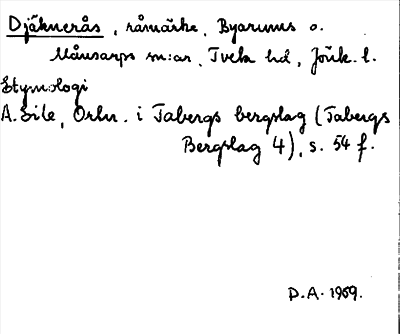 Djäknerås, råmärke, Byarums o.
Månsarps sn:ar, Tveta hd, Jönk. l.
Etymologi
A. Eile, Ortn. i Tabergs bergslag (Tabergs
Bergslag 4), s. 54 f.
D.A. 1969.